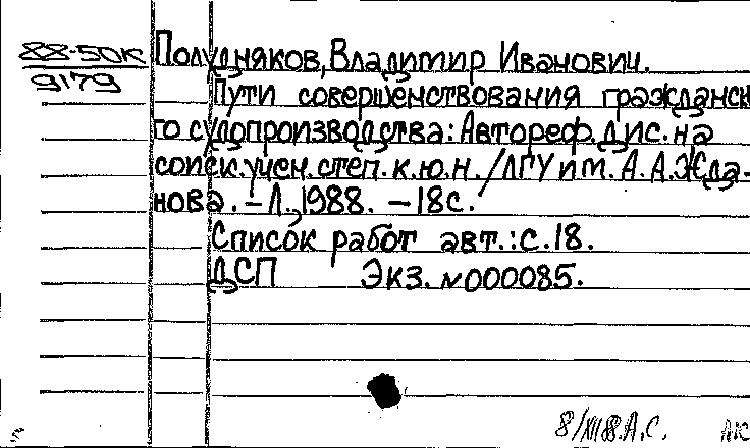 88-50к
9179
Полудняков, Владимир Иванович.
Пути совершенствования гражданск
го судопроизводства: Автореф. дис. на
соиск. учен. степ. к.ю.н. /ЛГУ им. А.А.Жда-
нова. – Л., 1988. – 18с.
Список работ авт.: с.18.
ДСП Экз. №000085.
8/XII 88 А.С.